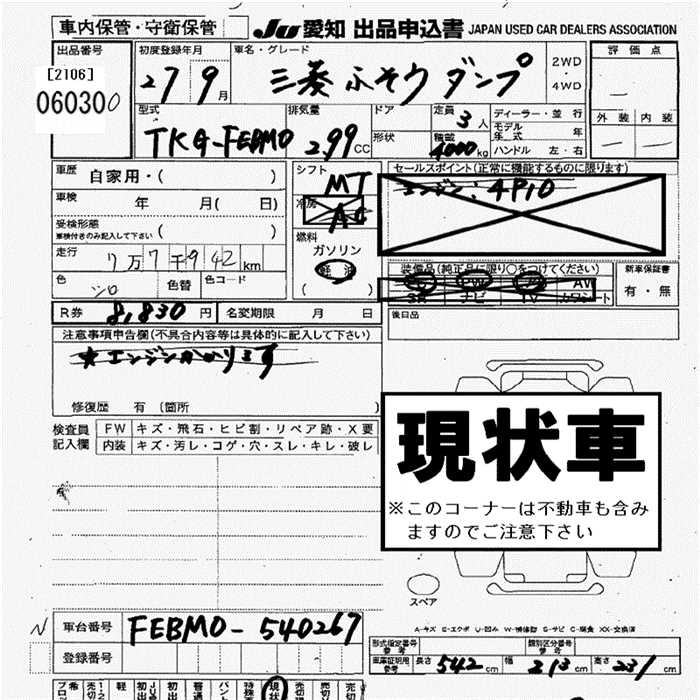 車内保管・守衛保管 JU 愛知 出品申込書 JAPAN USED CAR DEALERS ASSOCIATION
出品番号 初度登録年月 車名・グレード 2WD ・ 4WD 評価点
[2106] 27 9月 三菱 ふそう ダンプ
060300
型式 排気量 ドア 定員 3人 ディーラー・並行 外装 内装
TKG-FEBM0 299CC 形状 積載 4000kg モデル年式 年
ハンドル 左・右
車歴 自家用・( ) シフト MT セールスポイント(正常に機能するものに限ります)
エンジン:4P10
車検 年 月( 日) 冷房 AC
受検形態 車検付きのみ記入して下さい ( ) 燃料
ガソリン
走行 7万7千942km 軽油
( )
装備品(純正品に限り○をつけてください) 新車保証書
AW
SR ナビ TV カワシート 有・無
色 シロ 色替 色コード
R券 8,830円 名変期限 月 日 後日品
注意事項申告欄(不具合内容等は具体的に記入して下さい)
★エンジンかかります
修復歴 有(箇所 )
検査員記入欄 FW キズ・飛石・ヒビ割・リペア跡・X要
内装 キズ・汚レ・コゲ・穴・スレ・キレ・破レ
現状車
※このコーナーは不動車も含み
ますのでご注意下さい
スペア
A-キズ E-エクボ U-凹み W-補修跡 S-サビ C-腐食 XX-交換済
N 車台番号 FEBM0-540267
登録番号
形式指定番号 参考 類別区分番号 参考
車庫証明用参考 長さ 542cm 幅 213cm 高さ 231cm